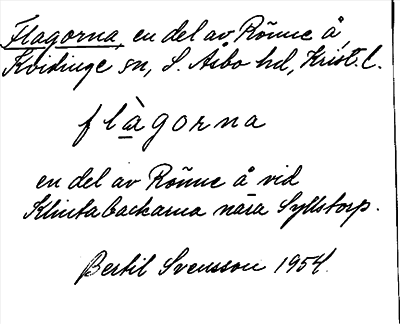 Flagorna, en del av Rönne å
Kvidinge sn, S. Åsbo hd, Krist. l.
flàgorna
en del av Rönne å vid
Klintabackarna nära Syllstorp.
Bertil Svensson 1954.